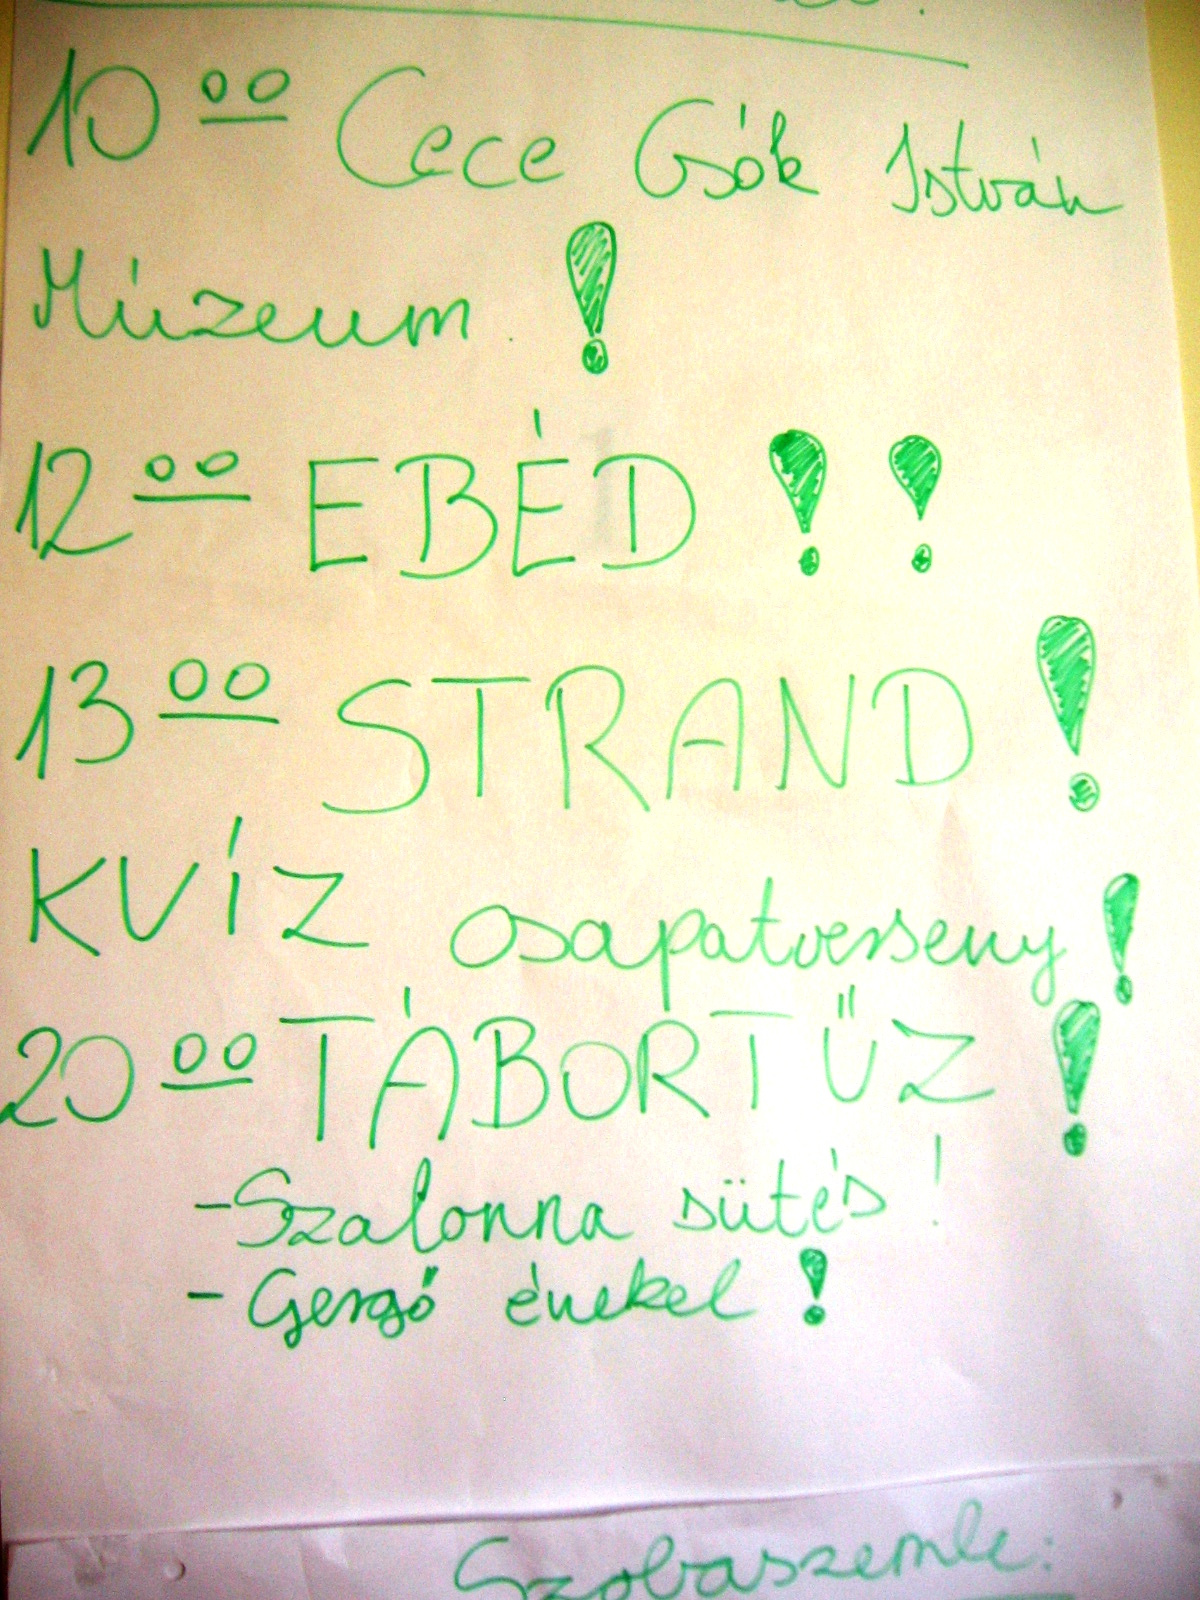 10 00 Cece Csók István
Múzeum !
12 00 EBÉD !!
13 00 STRAND !
KVÍZ csapatverseny !
20 00 TÁBORTŰZ !
- Szalonna sütés !
- Gergő énekel !
Szobaszemle: